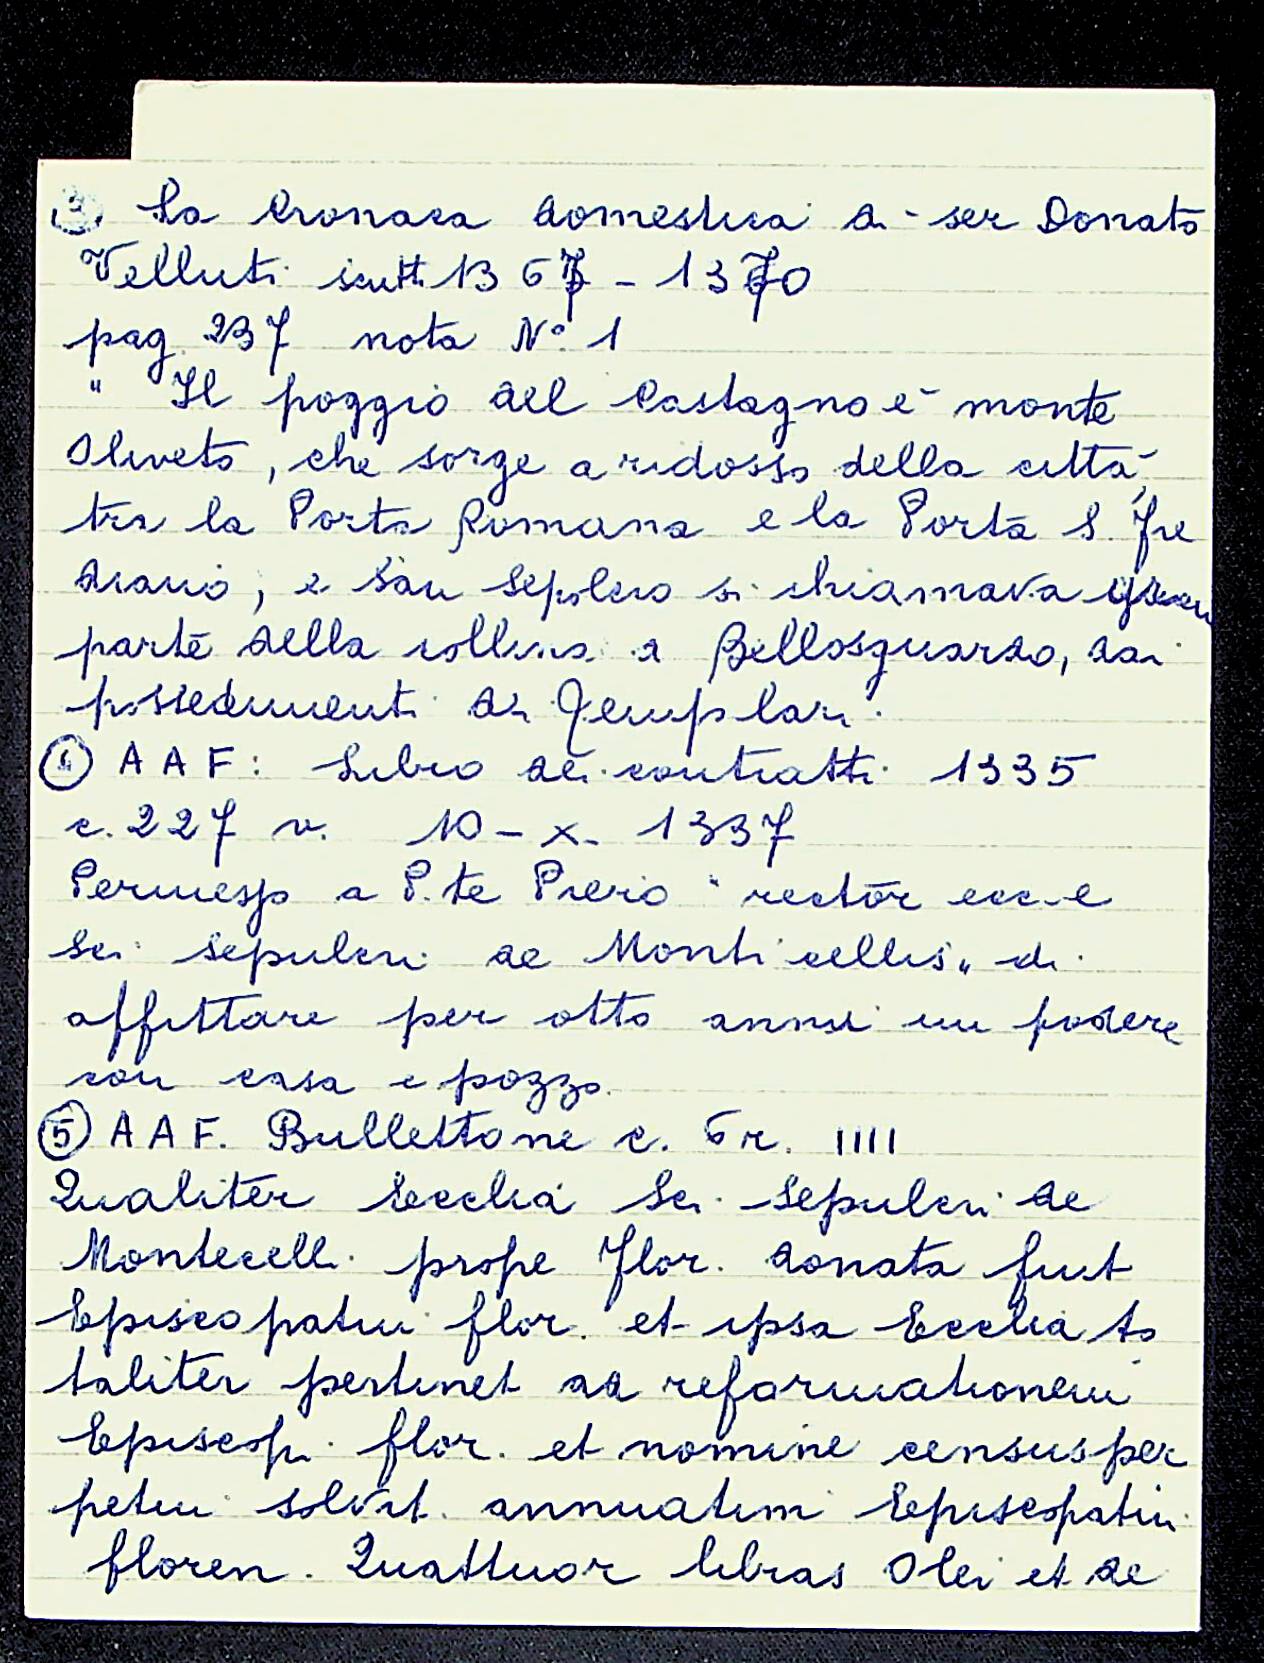 ③ La Cronaca domestica di ser Donato
Velluti scritt. 1367 - 1370
pag. 237 nota N° 1
" Il poggio del Castagno è monte
Oliveto, che sorge a ridosso della città,
tra la Porta Romana e la Porta S. Fre
diano; e San Sepolcro si chiamava
parte della collina a Bellosguardo, dai
possedimenti di Templari.
④ A A F: Libro dei contratti 1335
c. 227 v. 10 - X - 1337
Permesso a P.te Piero " rector ecc.e
Sci Sepulcri de Monticellis " di
affittare per otto anni un podere
con casa e pozzo.
⑤ A A F. Bullettone c. 6 r. IIII
Qualiter Ecclia Sci Sepulcri de
Montecell. prope Flor. donata fuit
Episcopatui flor. et ipsa Ecclia to
taliter pertinet ad reformationem
Episcopi flor. et nomine census per
petui solvit annuatim Episcopatui
floren. Quattuor libras Olei et de